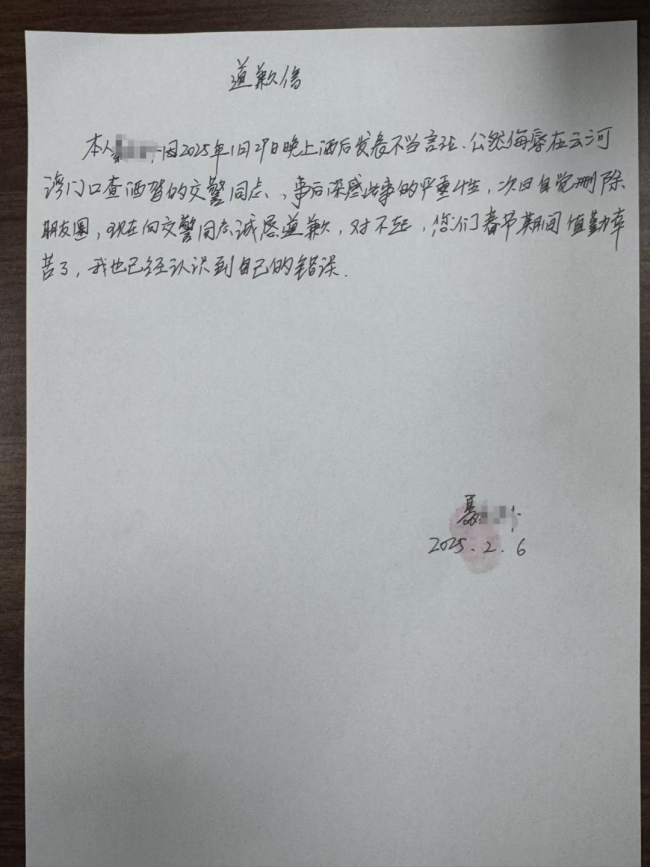 道歉信
本人 因2025年1月29日晚上酒后发表不当言论、公然侮辱在云河
湾门口查酒驾的交警同志、,事后深感此事的严重性,次日自觉删除
朋友圈,现在向交警同志诚恳道歉,对不起,您们春节期间值勤辛
苦了,我也已经认识到自己的错误.
聂
2025.2.6